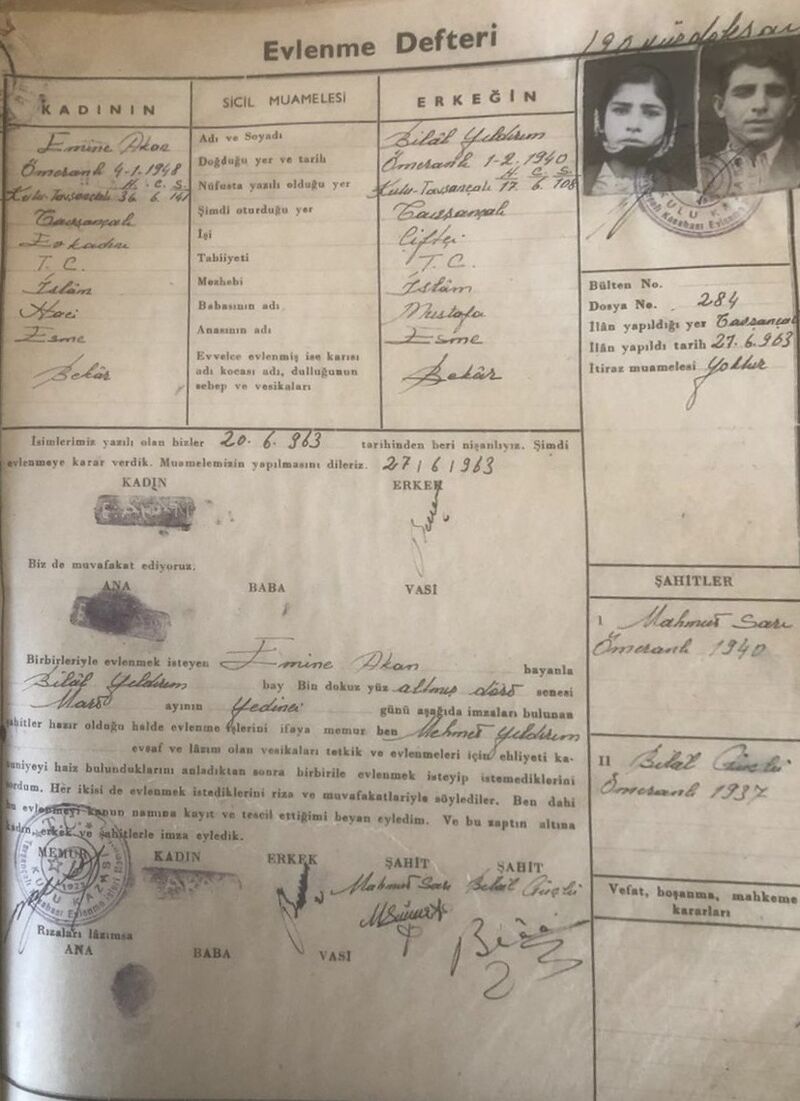 Evlenme Defteri
190 yüz doksan
KADININ
SİCİL MUAMELESİ
ERKEĞİN
Emine Akan
Adı ve Soyadı
Bilâl Yıldırım
Ömeranlı 4-1-1948
Doğduğu yer ve tarih
Ömeranlı 1-2-1940
H. C. S.
Kulu-Tavşançalı 36 6 141
Nüfusta yazılı olduğu yer
H. C. S.
Kulu-Tavşançalı 17 6 108
Tavşançalı
Şimdi oturduğu yer
Tavşançalı
Ev kadını
İşi
Çiftçi
T. C.
Tabiiyeti
T. C.
İslâm
Mezhebi
İslâm
Haci
Babasının adı
Mustafa
Esme
Anasının adı
Esme
Bekâr
Evvelce evlenmiş ise karısı
adı kocası adı, dulluğunun
sebep ve vesikaları
Bekâr
Bülten No.
Dosya No. 284
İlân yapıldığı yer Tavşançalı
İlân yapıldı tarih 27.6.963
İtiraz muamelesi Yoktur
İsimlerimiz yazılı olan bizler 20. 6. 963 tarihinden beri nişanlıyız. Şimdi
evlenmeye karar verdik. Muamelemizin yapılmasını dileriz. 27/6/963
KADIN
ERKEK
Biz de muvafakat ediyoruz.
ANA
BABA
VASİ
Birbirleriyle evlenmek isteyen Emine Akan bayanla
Bilâl Yıldırım bay Bin dokuz yüz altmış dört senesi
Mart ayının Yedinci günü aşağıda imzaları bulunan
şahitler hazır olduğu halde evlenme işlerini ifaya memur ben Mehmet Yıldırım
evsaf ve lâzım olan vesikaları tetkik ve evlenmeleri için ehliyeti ka-
nuniyeyi haiz bulunduklarını anladıktan sonra birbirile evlenmek isteyip istemediklerini
sordum. Her ikisi de evlenmek istediklerini riza ve muvafakatlariyle söylediler. Ben dahi
bu evlenmeyi kanun namına kayıt ve tescil ettiğimi beyan eyledim. Ve bu zaptın altına
kadın, erkek ve şahitlerle imza eyledik.
MEMUR
KADIN
ERKEK
ŞAHİT
ŞAHİT
Mahmut Sarı
Bilâl Güçlü
Rızaları lâzımsa
ANA
BABA
VASİ
ŞAHİTLER
I Mahmut Sarı
Ömeranlı 1940
II Bilâl Güçlü
Ömeranlı 1937
Vefat, boşanma, mahkeme
kararları